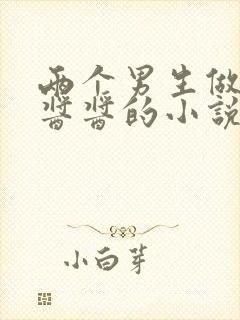 两个男生做
酱酱的小说
小白芽